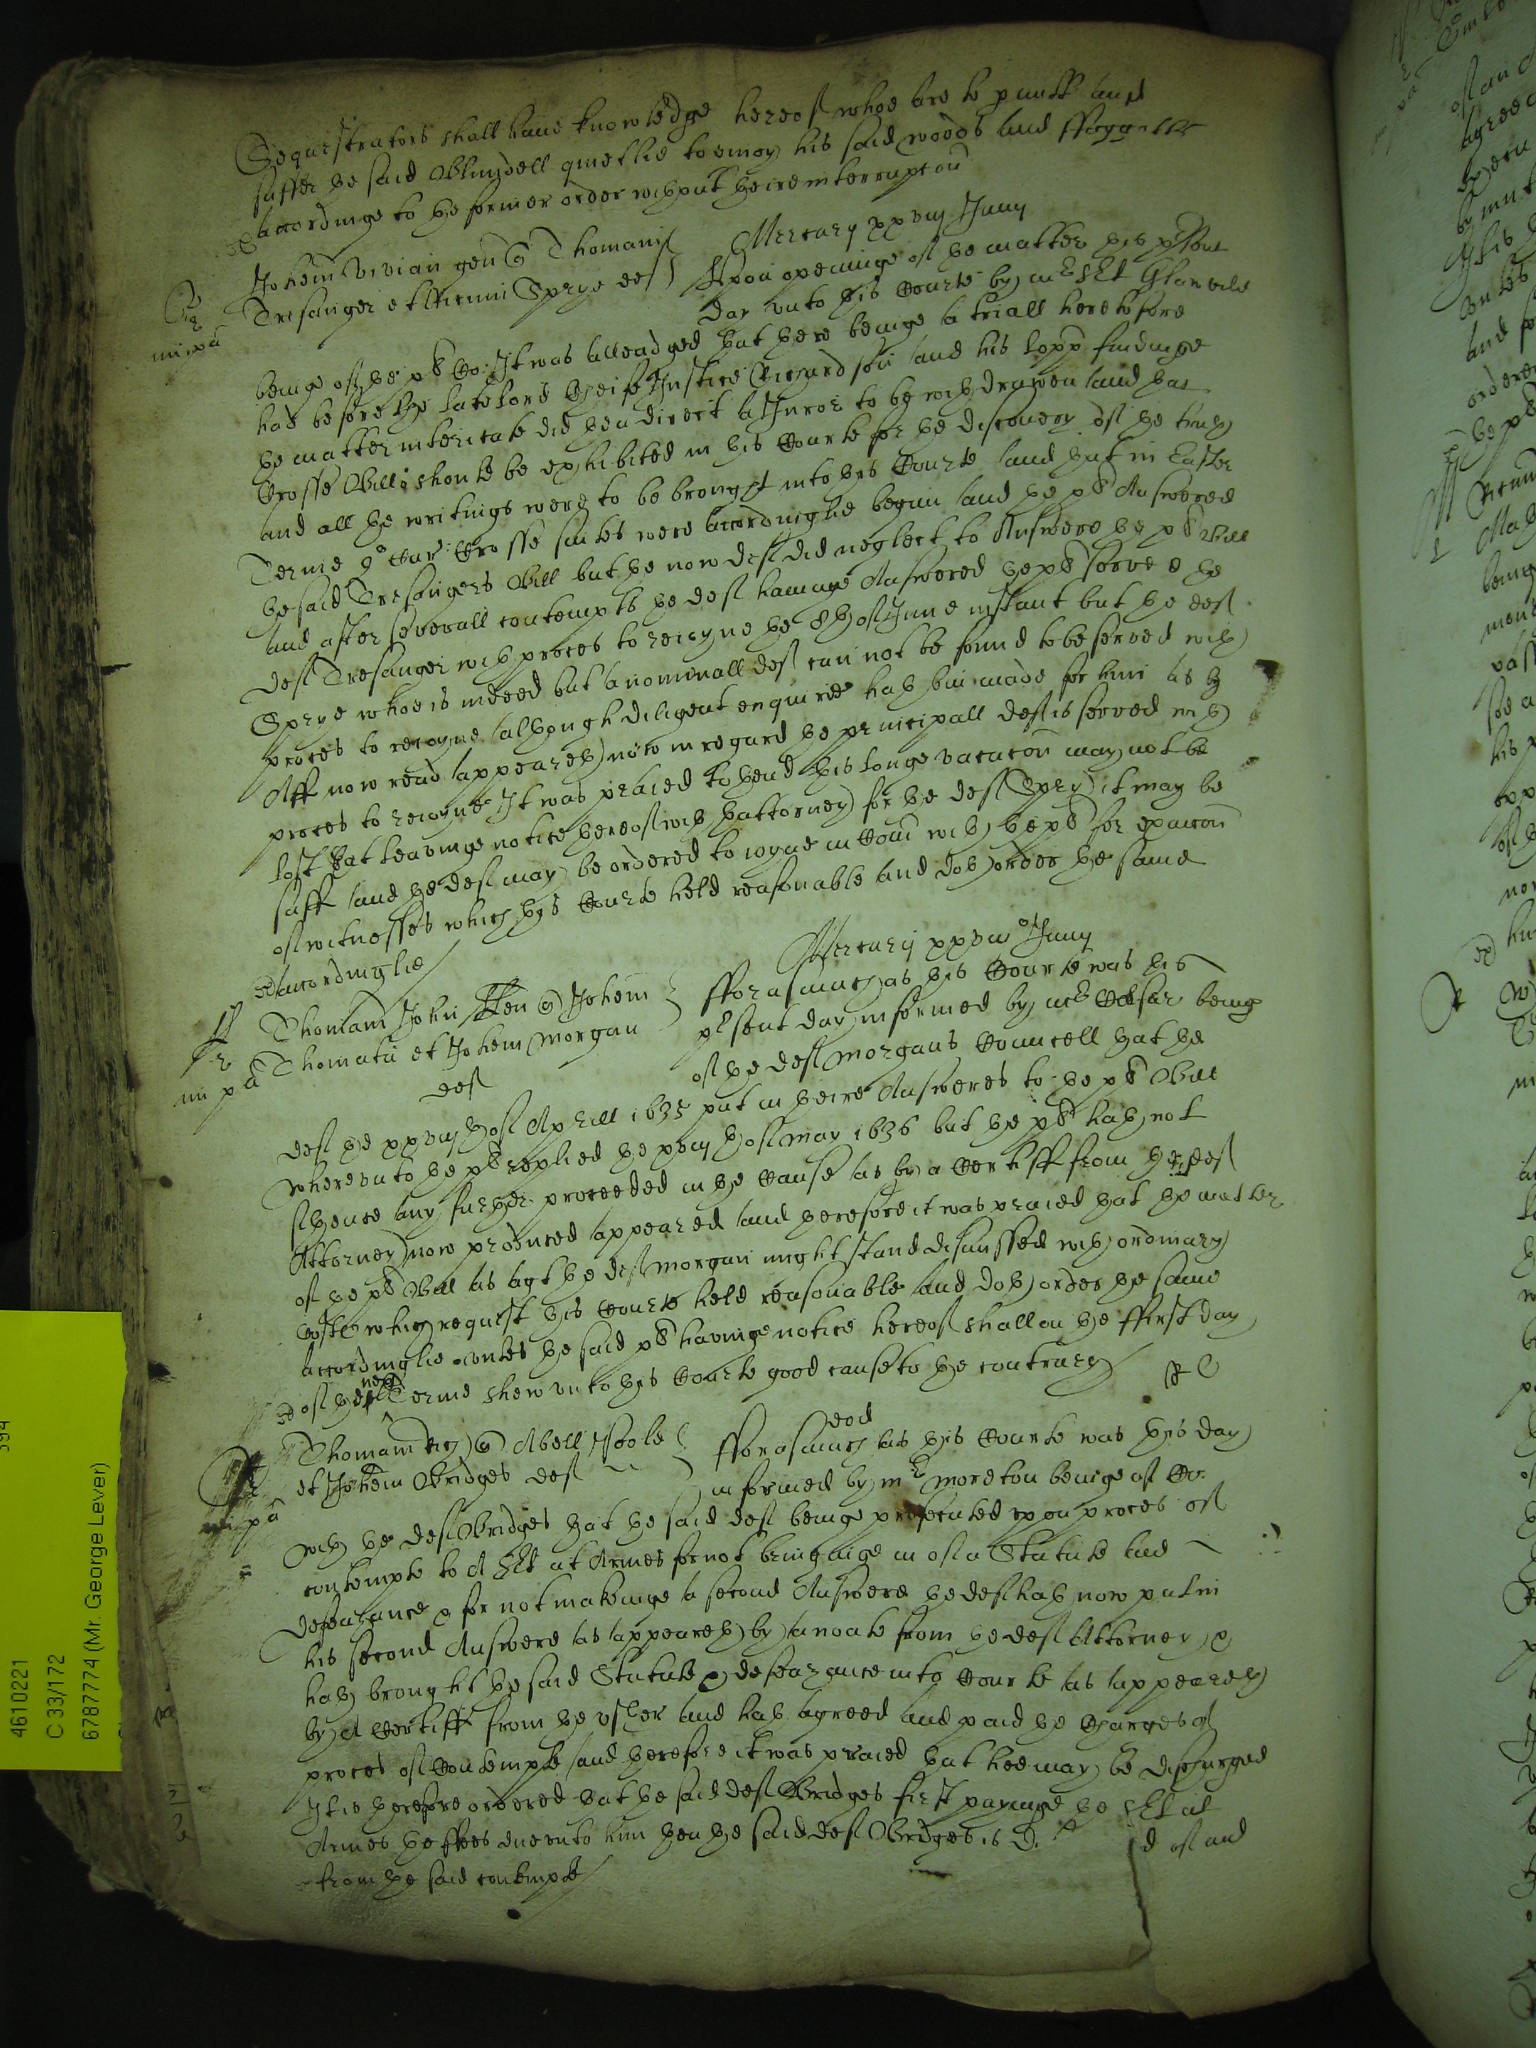 Sequestrators shall have knowledge hereof whoe are to p'mitt and
suffer the said Blundell quietlie to enioy his said woods and ffaggotts
accordinge to the former order without theire interrupcon
Mercurij xxviij Junij
Johem Vivian gen Q Thomam
Tresanger et Willimu Sprye def
Upon openinge of the matter this p'sent
day unto this Courte by mr Sjt Glanvile
beinge of the pl Co: It was alleadged that there beinge a triall heretofore
had before the late lord Cheife Justice Richardson and his lopp findinge
the matter intericate did then direct a Juror to be withdrawen and that
Crosse Bills should be exhibited in this Courte for the discovery of the truth
and all the writings were to be brought into this Courte and that in Easter
Terme 9o Car Crosse suites were accordinglie begun and the pl Answered
the said Tresangers Bill but the now def did neglect to Answere the pl Bill
and after severall contempts the def haveinge Answered the pl served the
def Tresanger with proces to reioyne the 8th of June instant but the def
Sprye whoe is indeed but a nominall def can not be found to be served with
proces to reioyne (although diligent enquirie hath bin made for him as by
Aff now read appeareth) now in regard the principall def is served with
proces to reioyne It was praied to thend this longe vacacon may not be
lost that leavinge notice hereof with thattorney for the def Spry it may be
suff and the def may be ordered to ioyne in Com with the pl for exaicon
of witnesses which this Courte held reasonable and doth order the same
accordinglie
Mercurij xxviijo Junij
Thomam John Hen Q Johem
Thomam et Johem Morgan
def
fforasmuch as this Courte was this
p'sent day informed by mr Cesar being
of the def Morgans Councell that the
def the xxviijth of Aprill 1635 put in theire Answeres to the pl Bill
whereunto the pl replied the xviijth of May 1636 but the pl hath not
sithence any further proceeded in the Cause as by a Certiff from the def
Attorney now produced appeared and therefore it was praied that the matter
of the pl Bill as agt the def Morgan might stand dismissed with ordinary
Costs which request this Courte held reasonable and doth order the same
accordinglie unles the said pl havinge notice hereof shall on the ffirst day
of the next Terme shew unto this Courte good cause to the contrary
Thomam Rich Q Abell Poole
et Johem Bridges def
eod
fforasmuch as this Courte was this day
informed by mr Moreton beinge of Co:
with the def Bridges that the said def beinge prosecuted upon proces of
contempte to A Sjt at Armes for not bringinge in of a Statute and
defeazance & for not makeinge a second Answere the def hath now put in
his second Answere as appeareth by a noate from the def Attorney &
hath brought the said Statute & defeazance into Courte as appeareth
by A Certiff from the usher and hath agreed and paid the Charges of
proces of Contempte and therefore it was praied that hee may be discharged
It is therefore ordered that the said def Bridges first payinge the Sjt at
Armes the ffees due unto him then the said def Bridges is d of and
from the said contempte
394
4610221
C 33/172
6787774 (Mr. George Lever)